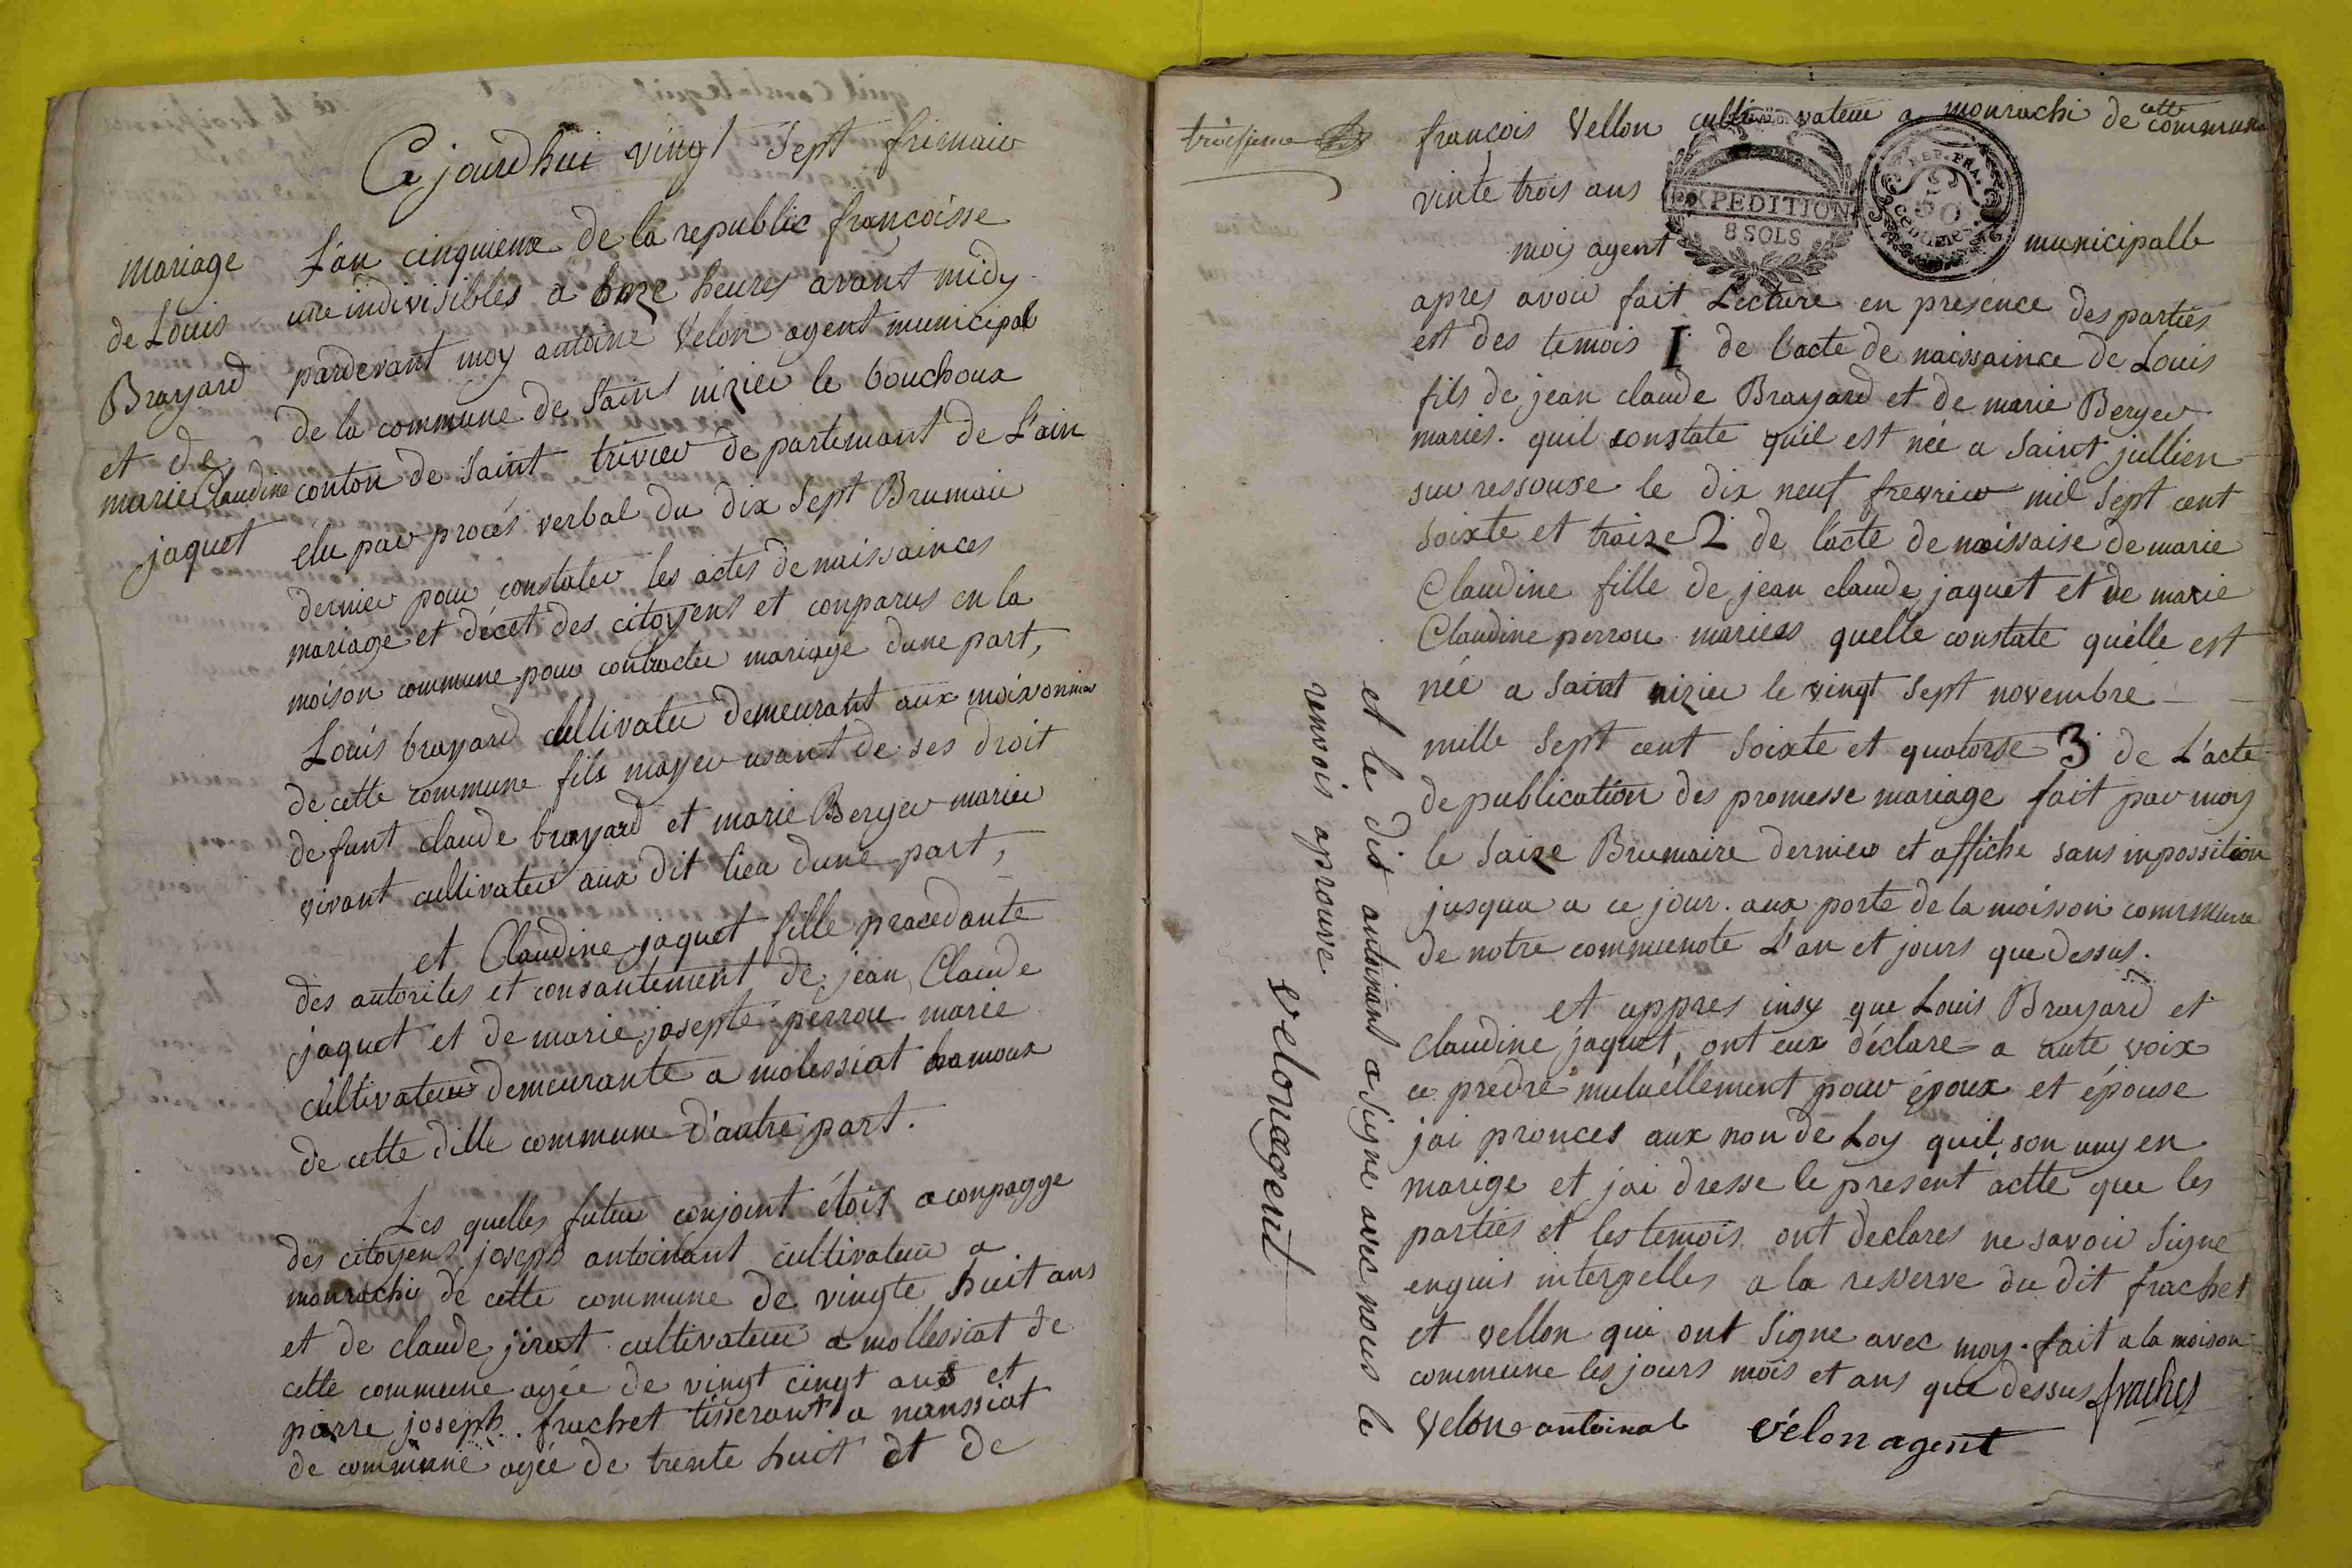 Ce jourdhui vingt Sept frimaire
mariage
de Louis
Brayard
et de
marie Claudine
jaquet
L'an cinquieme de la republic francoisse
une indivisibles a onze heures avant midy
pardevant moy antoine Velon agent municipal
de la commune de Saint nizier le bouchoux
conton de Saint trivier departement de L'ain
elu par procés verbal du dix Sept Brumaire
dernier pour constater les actes de naissainces
mariage et décet des citoyens et conparus en la
moison commune pour contracter mariage dune part,
Louis brayard cultivateur demeurant aux
de cette commune fils mayeur usant de ses droit
defunt claude brayard et marie Berger marier
vivant cultivateur aux dit lieu dune part,
et Claudine jaquet fille procedante
des autorites et consantement de jean Claude
jaquet et de marie josepte perrou marie
cultivateur demeurante a molessiat hamoux
de cette ditte commune d'autre part.
Les quelles futur conjoint étoit aconpagge
des citoyens joseph antoinant cultivateur a
mourachi de cette commune de vingte huit ans
et de claude jirat cultivateur a mollessiat de
cette commune agée de vingt cinqt ans et
pierre joseph frachet tisserant a nanssiat
de commune agée de trente huit et de
troissieme
francois Vellon cultivateur a mourachi de cette commune
vinte trois ans
EXPEDITION
8 SOLS
REP. FRA.
50
CENTIMES
moy agent municipalle
apres avoir fait Lecture en presence des parties
est des temois I de l'acte de naissaince de Louis
fils de jean claude Brayard et de marie Berger
maries. quil constate quil est née a Saint jullien
sur ressouse le dix neuf frevrier mil Sept cent
Soixte et traize 2 de l'acte de naissaise de marie
Claudine fille de jean claude jaquet et de marie
Claudine perrou mariess quelle constate quélle est
née a Saint nizier le vingt Sept novembre
mille Sept cent Soixte et quatorse 3 de L'acte
de publication des promesse mariage fait par moy
le Saize Brumaire dernier et affiche sans inpossition
jusqua a ce jour. aux porte de la moisson commune
de notre communote L'an et jours que dessus.
et appres insy que Louis Brayard et
Claudine jaquet, ont eux déclare a aute voix
ce predre mutuéllement pour époux et épouse
jai pronces aux non de Loy quil son uny en
marige et jai dresse le present actte que les
parties et les temois ont declares ne savoir Signe
enquis interpelles a la resserve du dit frachet
et vellon qui ont Signe avec moy. fait a la moison
commune les jours mois et ans que dessus frachet
Velon antoinat velon agent
et le dit antoinant a signe avec nous le
renvois aprouve
velon agent